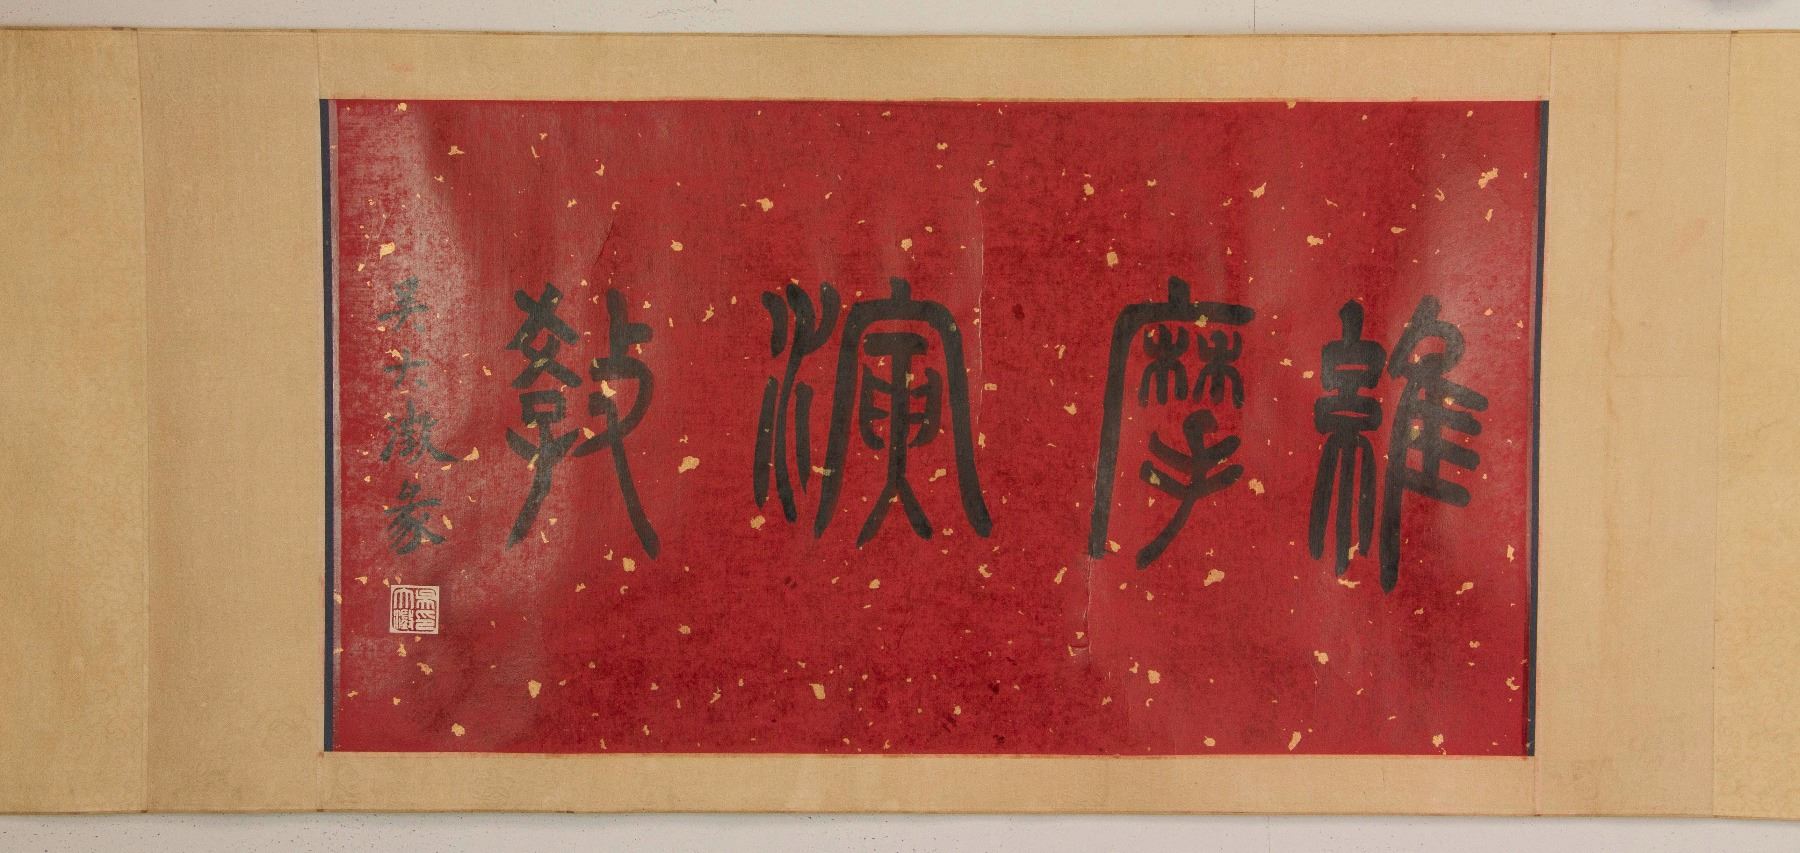 維摩演教
吳大澂篆
吳大澂印